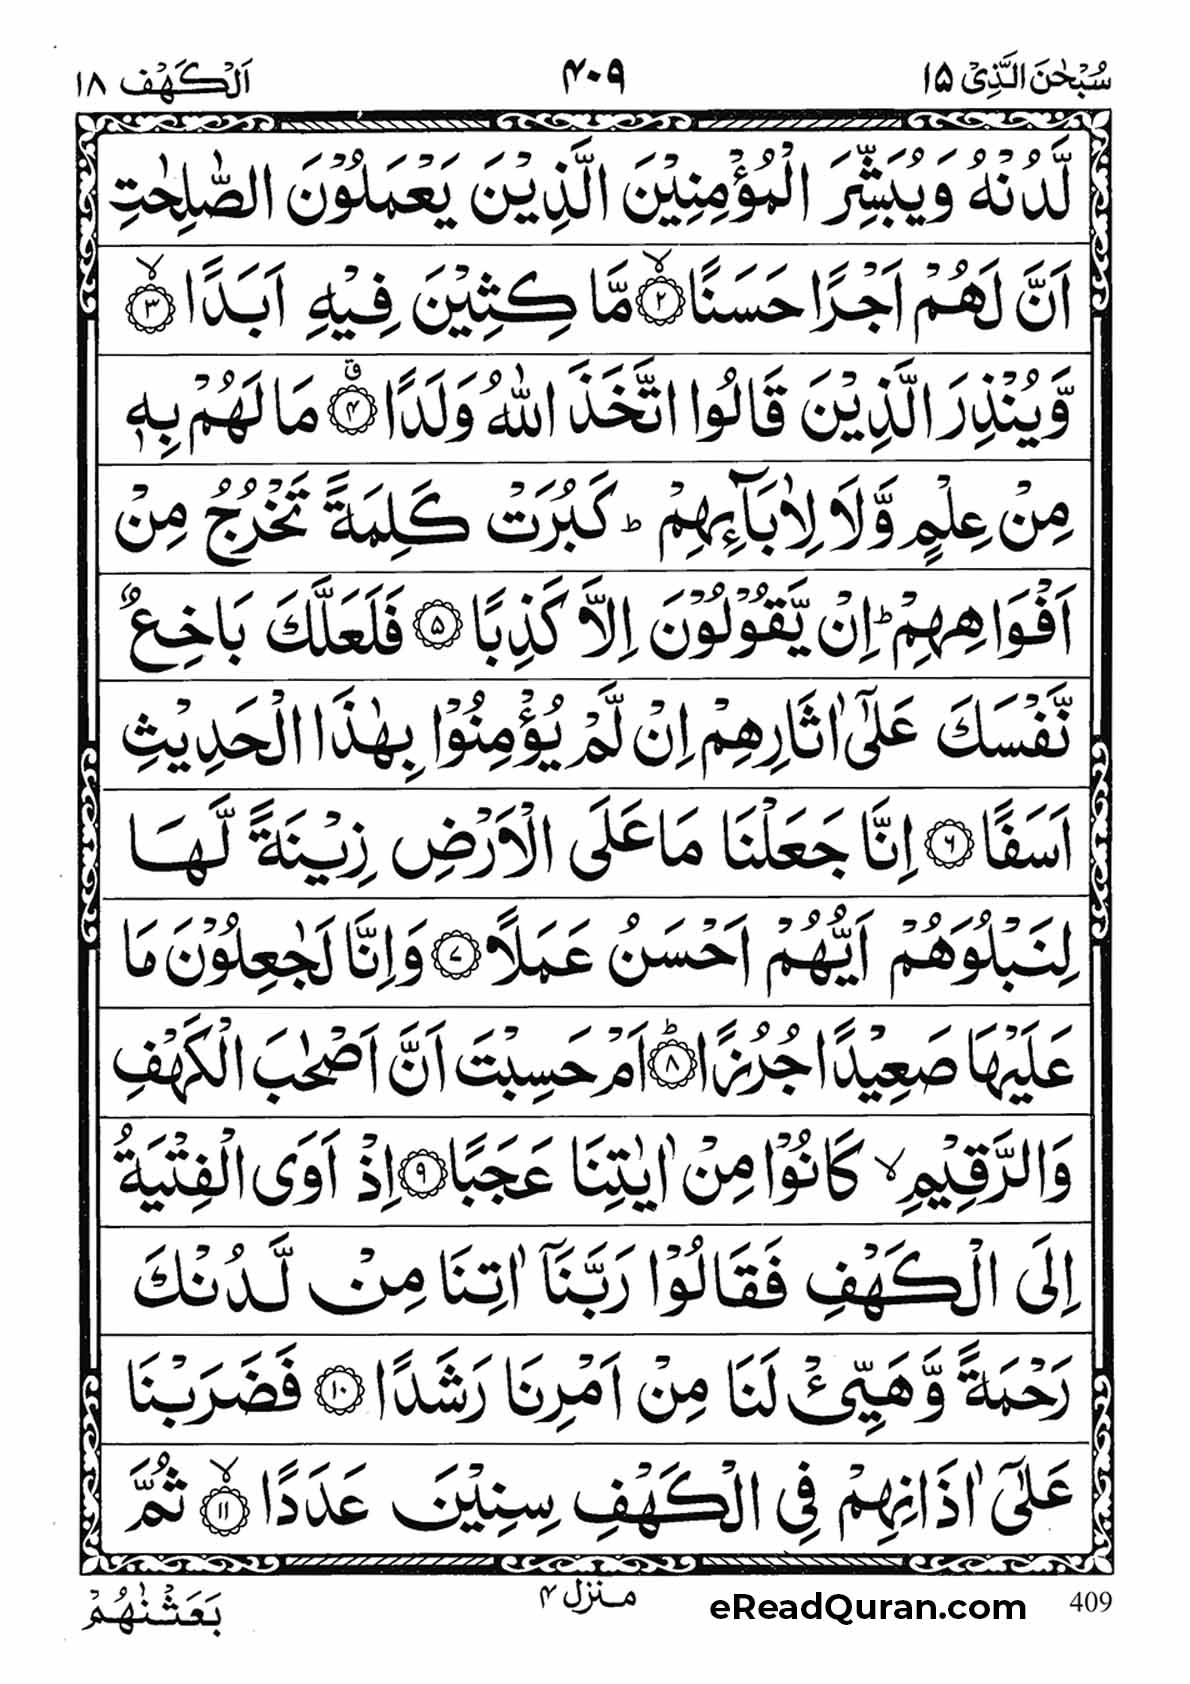 سُبْحٰنَ الَّذِیْ ١٥
٤٠٩
اَلْكَهْف ١٨
لَّدُنْهُ وَیُبَشِّرَ الْمُؤْمِنِیْنَ الَّذِیْنَ یَعْمَلُوْنَ الصّٰلِحٰتِ
اَنَّ لَهُمْ اَجْرًا حَسَنًا ۙ﴿٢﴾ مَّا كِثِیْنَ فِیْهِ اَبَدًا ۙ﴿٣﴾
وَّیُنْذِرَ الَّذِیْنَ قَالُوا اتَّخَذَ اللّٰهُ وَلَدًا ۗ﴿٤﴾ مَا لَهُمْ بِهٖ
مِنْ عِلْمٍ وَّلَا لِاٰبَآىِٕهِمْ ؕ كَبُرَتْ كَلِمَةً تَخْرُجُ مِنْ
اَفْوَاهِهِمْ ؕ اِنْ یَّقُوْلُوْنَ اِلَّا كَذِبًا ﴿٥﴾ فَلَعَلَّكَ بَاخِعٌ
نَّفْسَكَ عَلٰۤی اٰثَارِهِمْ اِنْ لَّمْ یُؤْمِنُوْا بِهٰذَا الْحَدِیْثِ
اَسَفًا ﴿٦﴾ اِنَّا جَعَلْنَا مَا عَلَی الْاَرْضِ زِیْنَةً لَّهَا
لِنَبْلُوَهُمْ اَیُّهُمْ اَحْسَنُ عَمَلًا ﴿٧﴾ وَاِنَّا لَجٰعِلُوْنَ مَا
عَلَیْهَا صَعِیْدًا جُرُزًا ؕ﴿٨﴾ اَمْ حَسِبْتَ اَنَّ اَصْحٰبَ الْكَهْفِ
وَالرَّقِیْمِ ۙ كَانُوْا مِنْ اٰیٰتِنَا عَجَبًا ﴿٩﴾ اِذْ اَوَی الْفِتْیَةُ
اِلَی الْكَهْفِ فَقَالُوْا رَبَّنَاۤ اٰتِنَا مِنْ لَّدُنْكَ
رَحْمَةً وَّهَیِّئْ لَنَا مِنْ اَمْرِنَا رَشَدًا ﴿١٠﴾ فَضَرَبْنَا
عَلٰۤی اٰذَانِهِمْ فِی الْكَهْفِ سِنِیْنَ عَدَدًا ۙ﴿١١﴾ ثُمَّ
409
eReadQuran.com
منزل ٤
بَعَثْنٰهُمْ